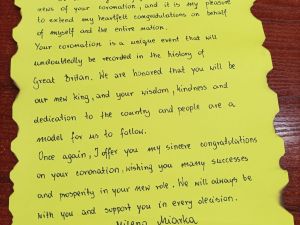 news of your coronation, and it is my pleasure
to extend my heartfelt congratulations on behalf
of myself and the entire nation.
Your coronation is a unique event that will
undoubtedly be recorded in the history of
Great Britan. We are honored that you will be
our new king, and your wisdom, kindness and
dedication to the country and people are a
model for us to follow.
Once again, I offer you my sincere congratulations
on your coronation, wishing you many successes
and prosperity in your new role. We will always be
with you and support you in every decision.
Milena Miarka